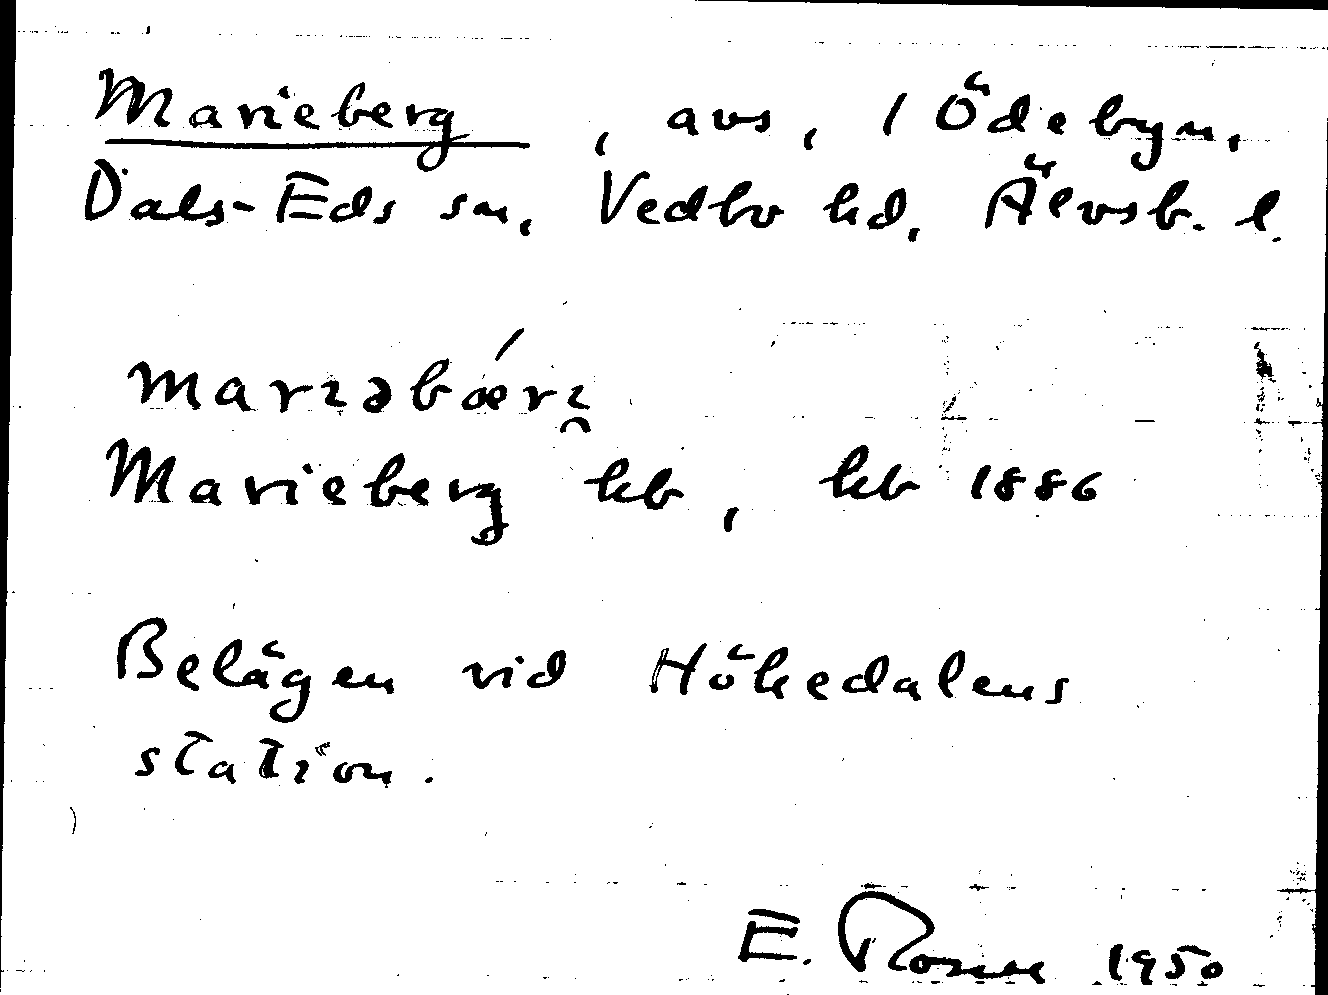 Marieberg, avs, 1 Ödebyn,
Dals-Eds sn, Vedbo hd, Älvsb. l.
marɩəbǽrɩ̯
Marieberg hb, kb 1886
Belägen vid Hökedalens
station.
E. 1950